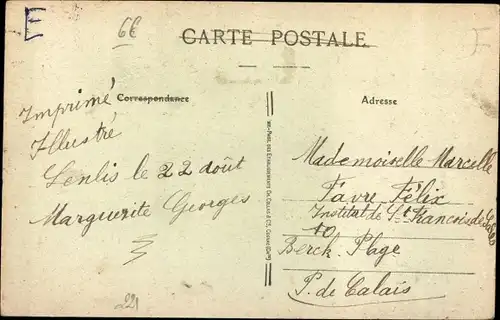 E
6E
CARTE POSTALE
Correspondance
Adresse
Imprimé
Illustré
Senlis le 22 août
Marguerite Georges
22
Mademoiselle Marcelle
Favre Félix
Institut de St François de Sales
Berck Plage
P. de Calais